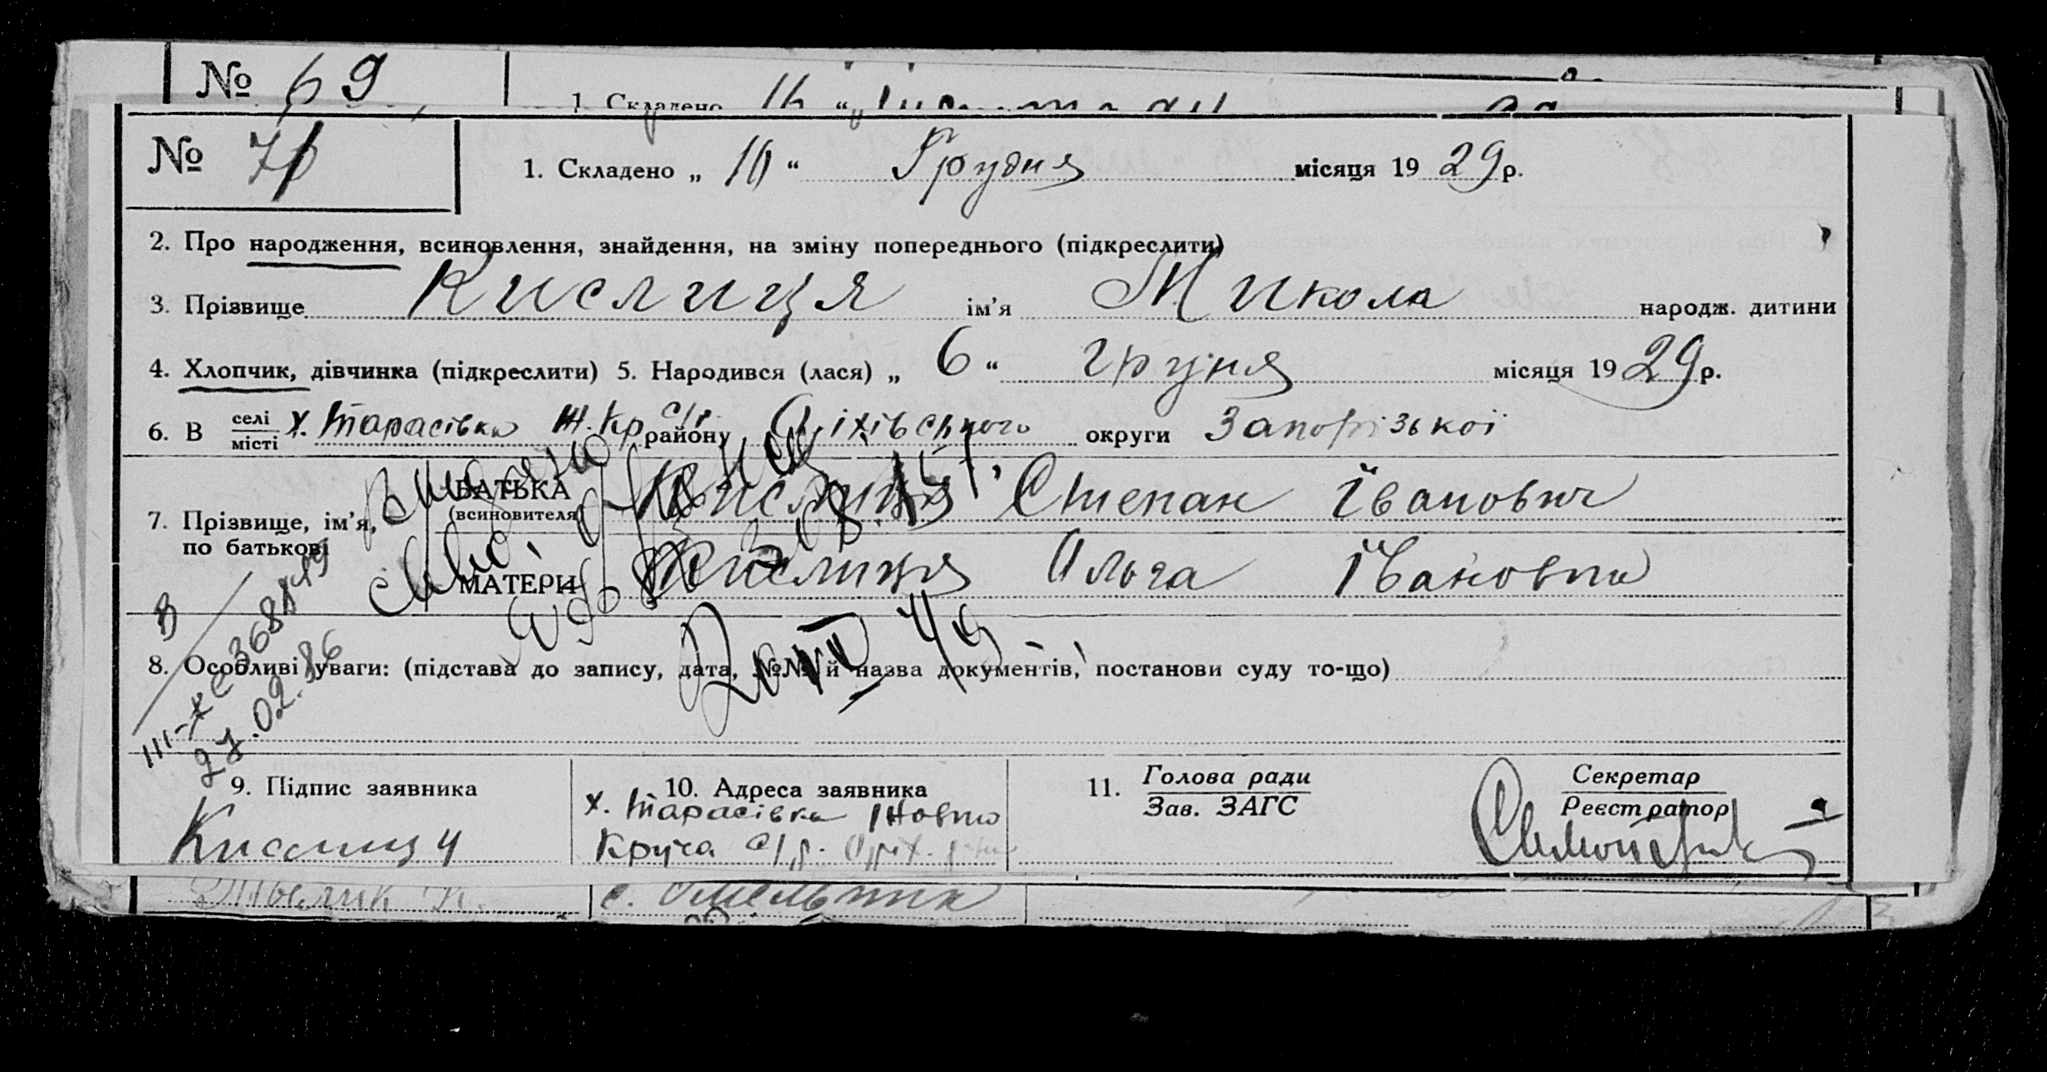 № 69
1. Складено 16 "
№ 70
1. Складено „ 10 “ Грудня місяця 1929 р.
2. Про народження, всиновлення, знайдення, на зміну попереднього (підкреслити)
3. Прізвище Кислиця ім'я Микола народж. дитини
4. Хлопчик, дівчинка (підкреслити) 5. Народився (лася) „ 6 “ груня місяця 1929 р.
6. В селі місті х. Тарасівка Ж. Кр с/р. району Оріхівського округи Запорізької
7. Прізвище, ім'я, по батькові
БАТЬКА (всиновителя) Кислиця Степан Іванович
МАТЕРИ Кислиця Ольга Івановна
В
III-ЖС 368849
27.02.86
8. Особливі уваги: (підстава до запису, дата, №№ й назва документів, постанови суду то-що)
9. Підпис заявника
Кислиця
10. Адреса заявника
х. Тарасівка Жовто
Круча с/р. Оріх. р-ну
11. Голова ради
Зав. ЗАГС
Секретар
Реєстратор
с. Омельник